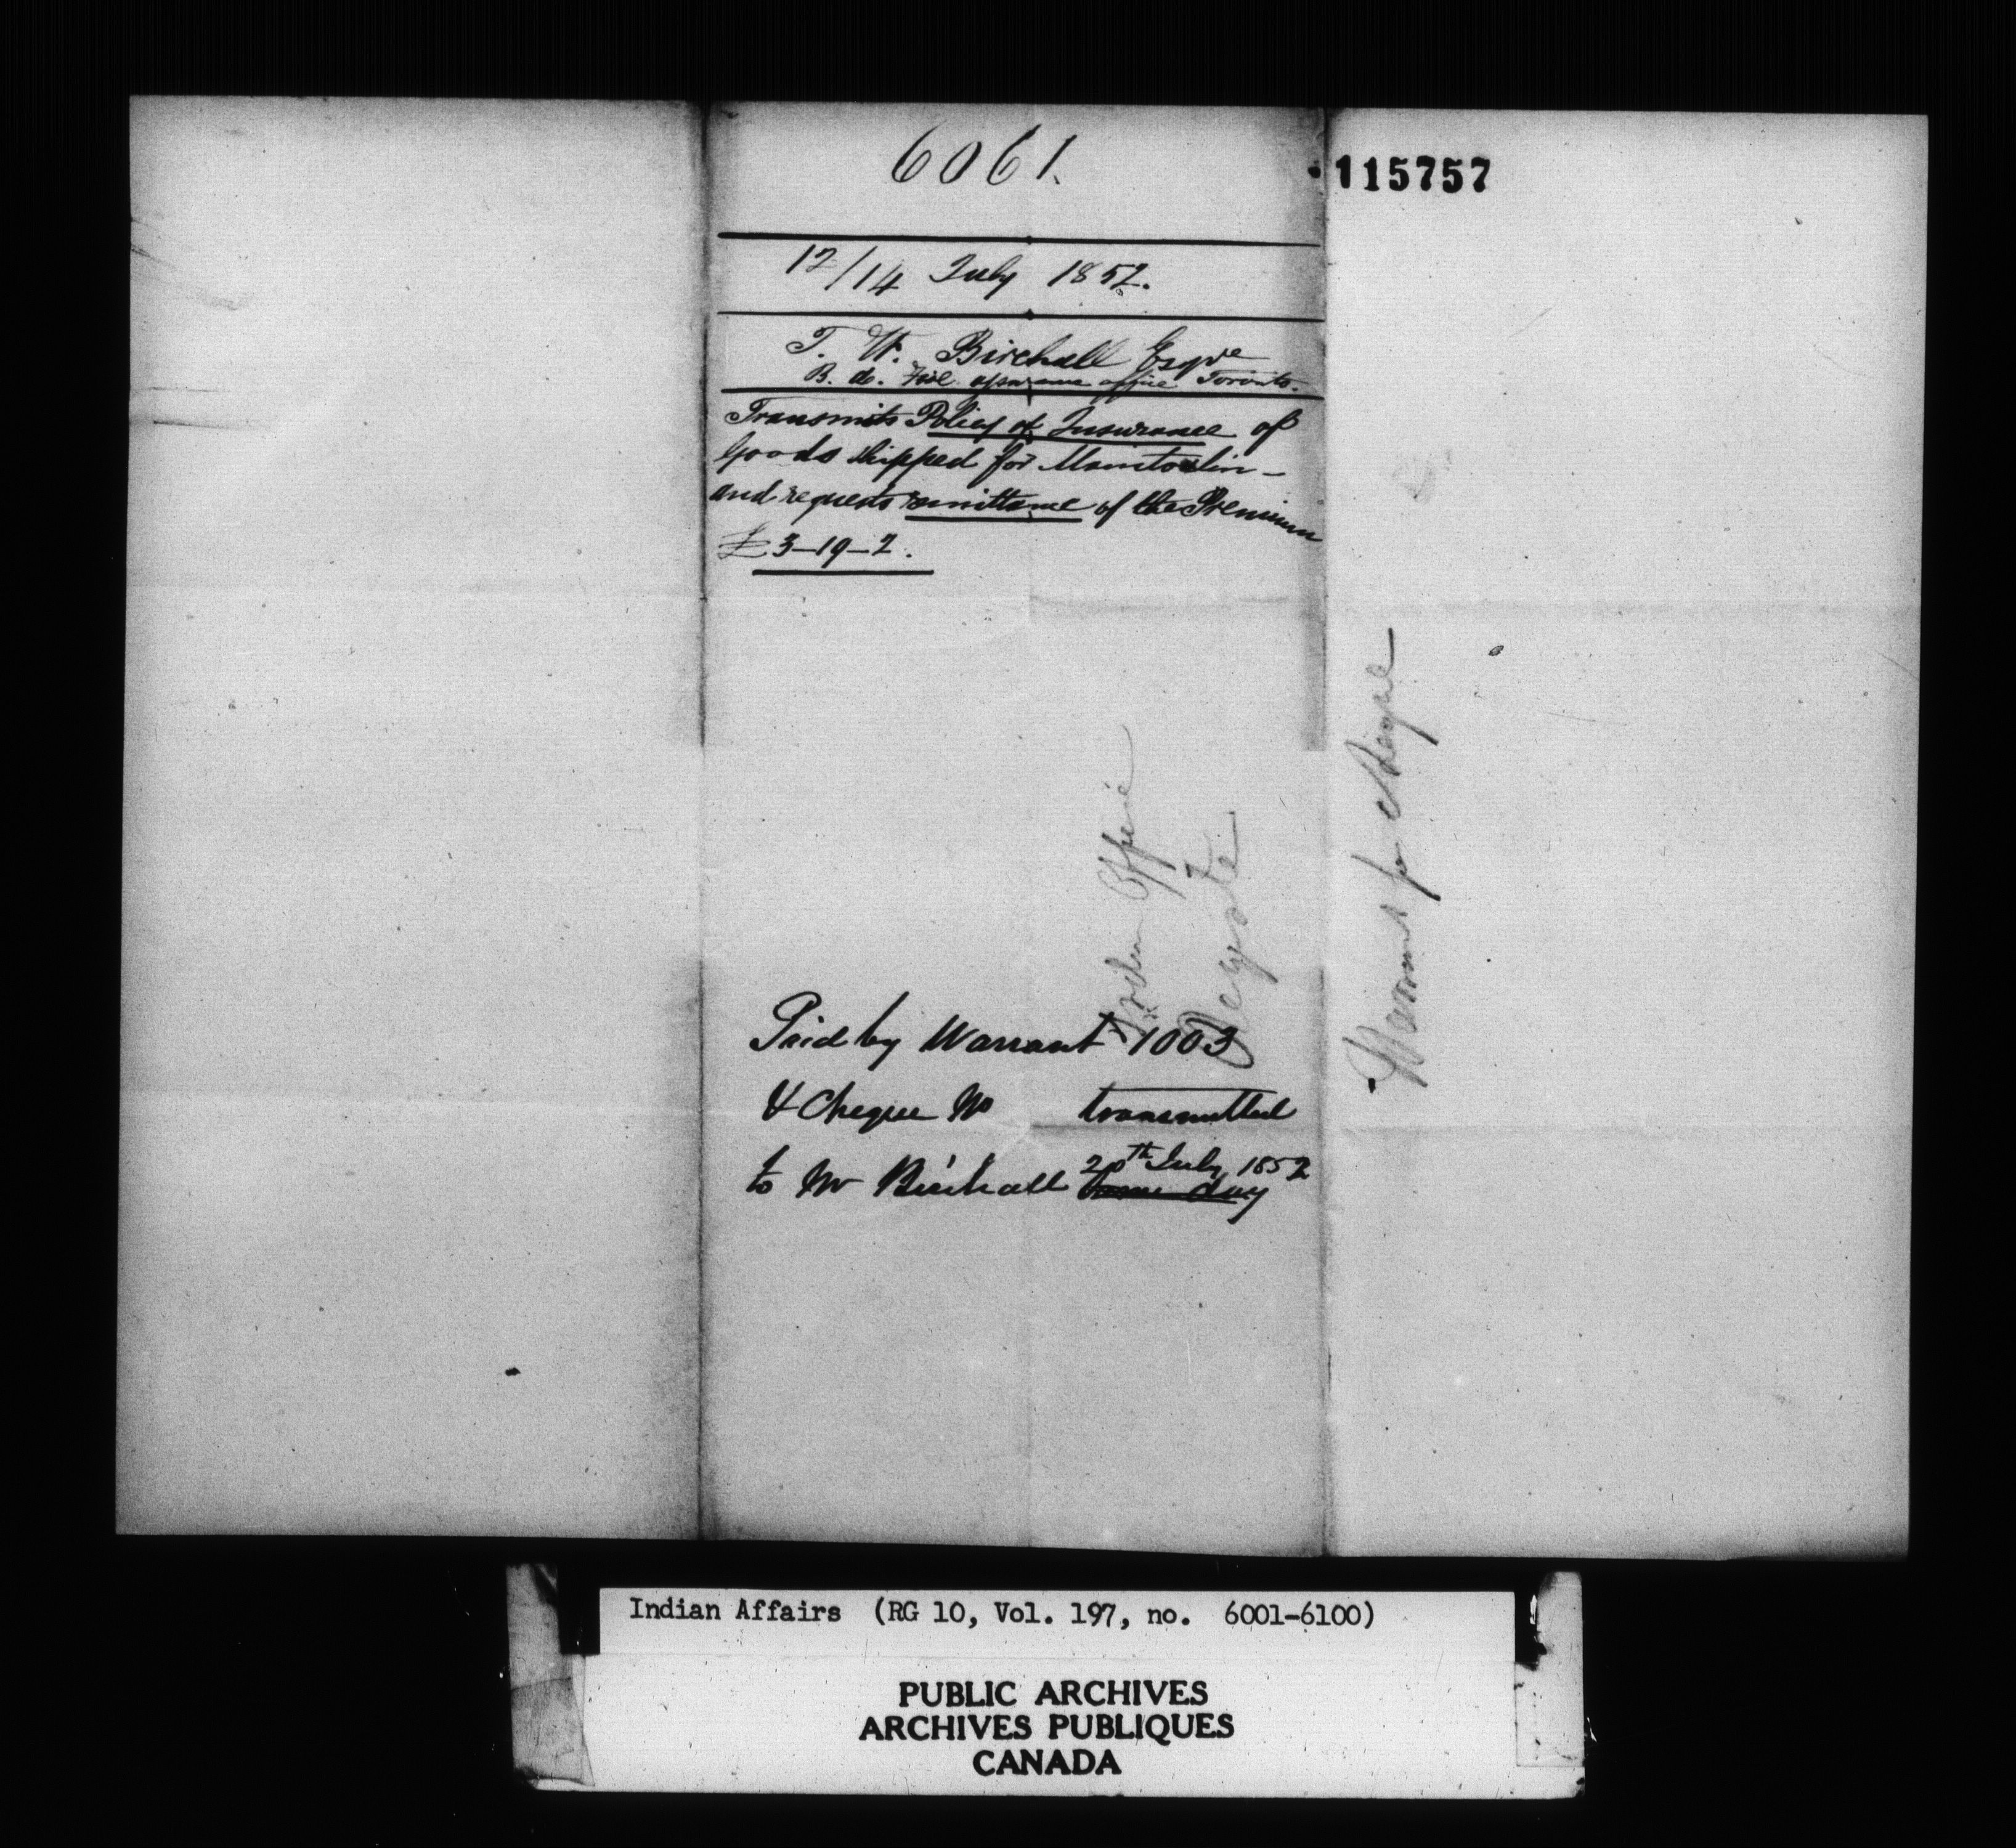 6061.
115757
12/14 July 1852.
T. W. Birchall Esqre
B. A. Fire assurance office Toronto.
Transmits Policy of Insurance of
Goods shipped for Manitoulin -
and requests remittance of the Premium
£ 3-19-2.
Indian Office
Register
Warrant for Cheque
Paid by Warrant 1003
& Cheque No transmitted
to Mr Birchall 20th July 1852
same day
Indian Affairs (RG 10, Vol. 197, no. 6001-6100)
PUBLIC ARCHIVES
ARCHIVES PUBLIQUES
CANADA